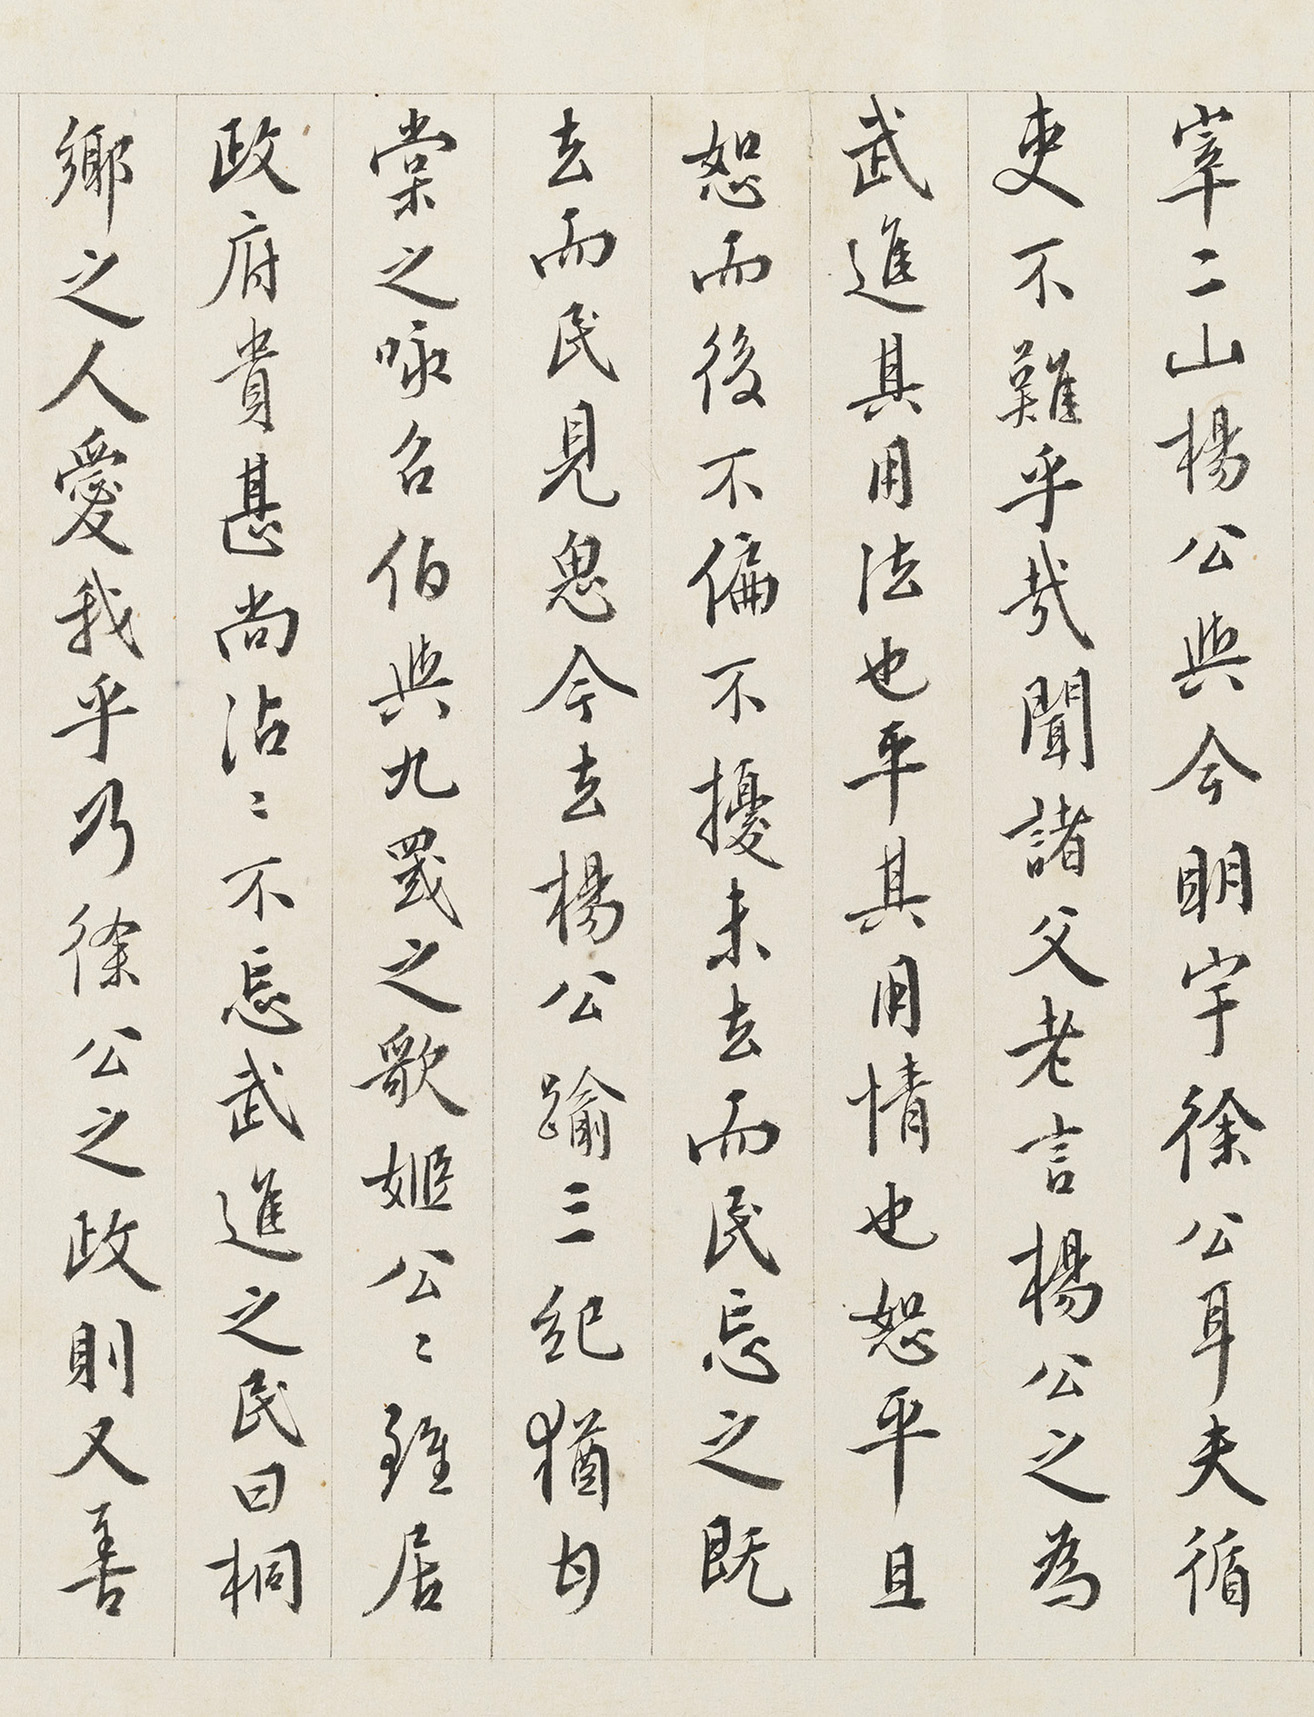 宰二山楊公與今明宇徐公耳夫循
吏不難乎哉聞諸父老言楊公之為
武進其用法也平其用情也恕平且
恕而後不偏不擾未去而民忘之既
去而民見思今去楊公踰三紀猶甘
棠之咏召伯與九罭之歌姬公〻雖居
政府貴甚尚沾〻不忘武進之民曰桐
鄉之人愛我乎乃徐公之政則又善